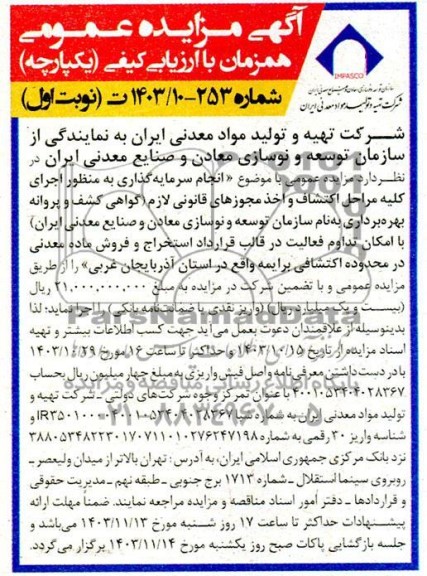 آگهی مزایده عمومی
همزمان با ارزیابی کیفی (یکپارچه)
شماره ۲۵۳-۱۴۰۳/۱۰ ت (نوبت اول)
IMPASCO
شرکت تهیه و تولید مواد معدنی ایران
شرکت تهیه و تولید مواد معدنی ایران به نمایندگی از
سازمان توسعه و نوسازی معادن و صنایع معدنی ایران در
نظر دارد مزایده عمومی با موضوع «انجام سرمایه‌گذاری به منظور اجرای
کلیه مراحل اکتشاف و اخذ مجوزهای قانونی لازم (گواهی کشف و پروانه
بهره‌برداری به‌نام سازمان توسعه و نوسازی معادن و صنایع معدنی ایران)
با امکان تداوم فعالیت در قالب قرارداد استخراج و فروش ماده معدنی
در محدوده اکتشافی برایمه واقع در استان آذربایجان غربی» را از طریق
مزایده عمومی و با تضمین شرکت در مزایده به مبلغ ۲۱.۰۰۰.۰۰۰.۰۰۰ ریال
(بیست و یک میلیارد ریال) (واریز نقدی یا ضمانت‌نامه بانکی) را اجرا نماید؛ لذا
بدینوسیله از علاقمندان دعوت بعمل می‌آید جهت کسب اطلاعات بیشتر و تهیه
اسناد مزایده از تاریخ ۱۴۰۳/۱۰/۱۵ و حداکثر تا ساعت ۱۶ مورخ ۱۴۰۳/۱۰/۲۹
با در دست داشتن معرفی‌نامه و اصل فیش واریزی به مبلغ چهار میلیون ریال بحساب
۴۰۰۱۱۰۵۳۴۰۴۰۲۸۳۶۷ با عنوان تمرکز وجوه شرکت‌های دولتی - شرکت تهیه و
تولید مواد معدنی ایران به شماره شبا
شناسه واریز ۳۰ رقمی به شماره ۳۸۸۰۵۳۴۸۲۲۳۰۱۷۰۷۱۱۰۱۰۲۷۶۲۴۷۱۹۸
نزد بانک مرکزی جمهوری اسلامی ایران، به آدرس: تهران بالاتر از میدان ولیعصر -
روبروی سینما استقلال - شماره ۱۷۱۳ برج جنوبی - طبقه نهم - مدیریت حقوقی
و قراردادها - دفتر امور اسناد مناقصه و مزایده مراجعه نمایند. ضمنا مهلت ارائه
پیشنهادات حداکثر تا ساعت ۱۷ روز شنبه مورخ ۱۴۰۳/۱۱/۱۳ می‌باشد و
جلسه بازگشایی پاکات صبح روز یکشنبه مورخ ۱۴۰۳/۱۱/۱۴ برگزار می‌گردد.